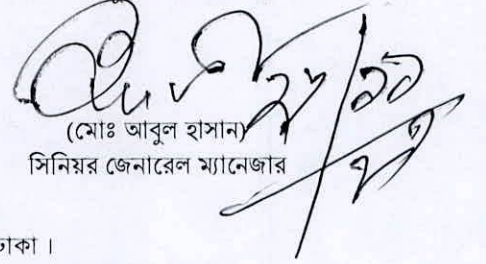 (মোঃ আবুল হাসান)
সিনিয়র জেনারেল ম্যানেজার
ঢাকা ।